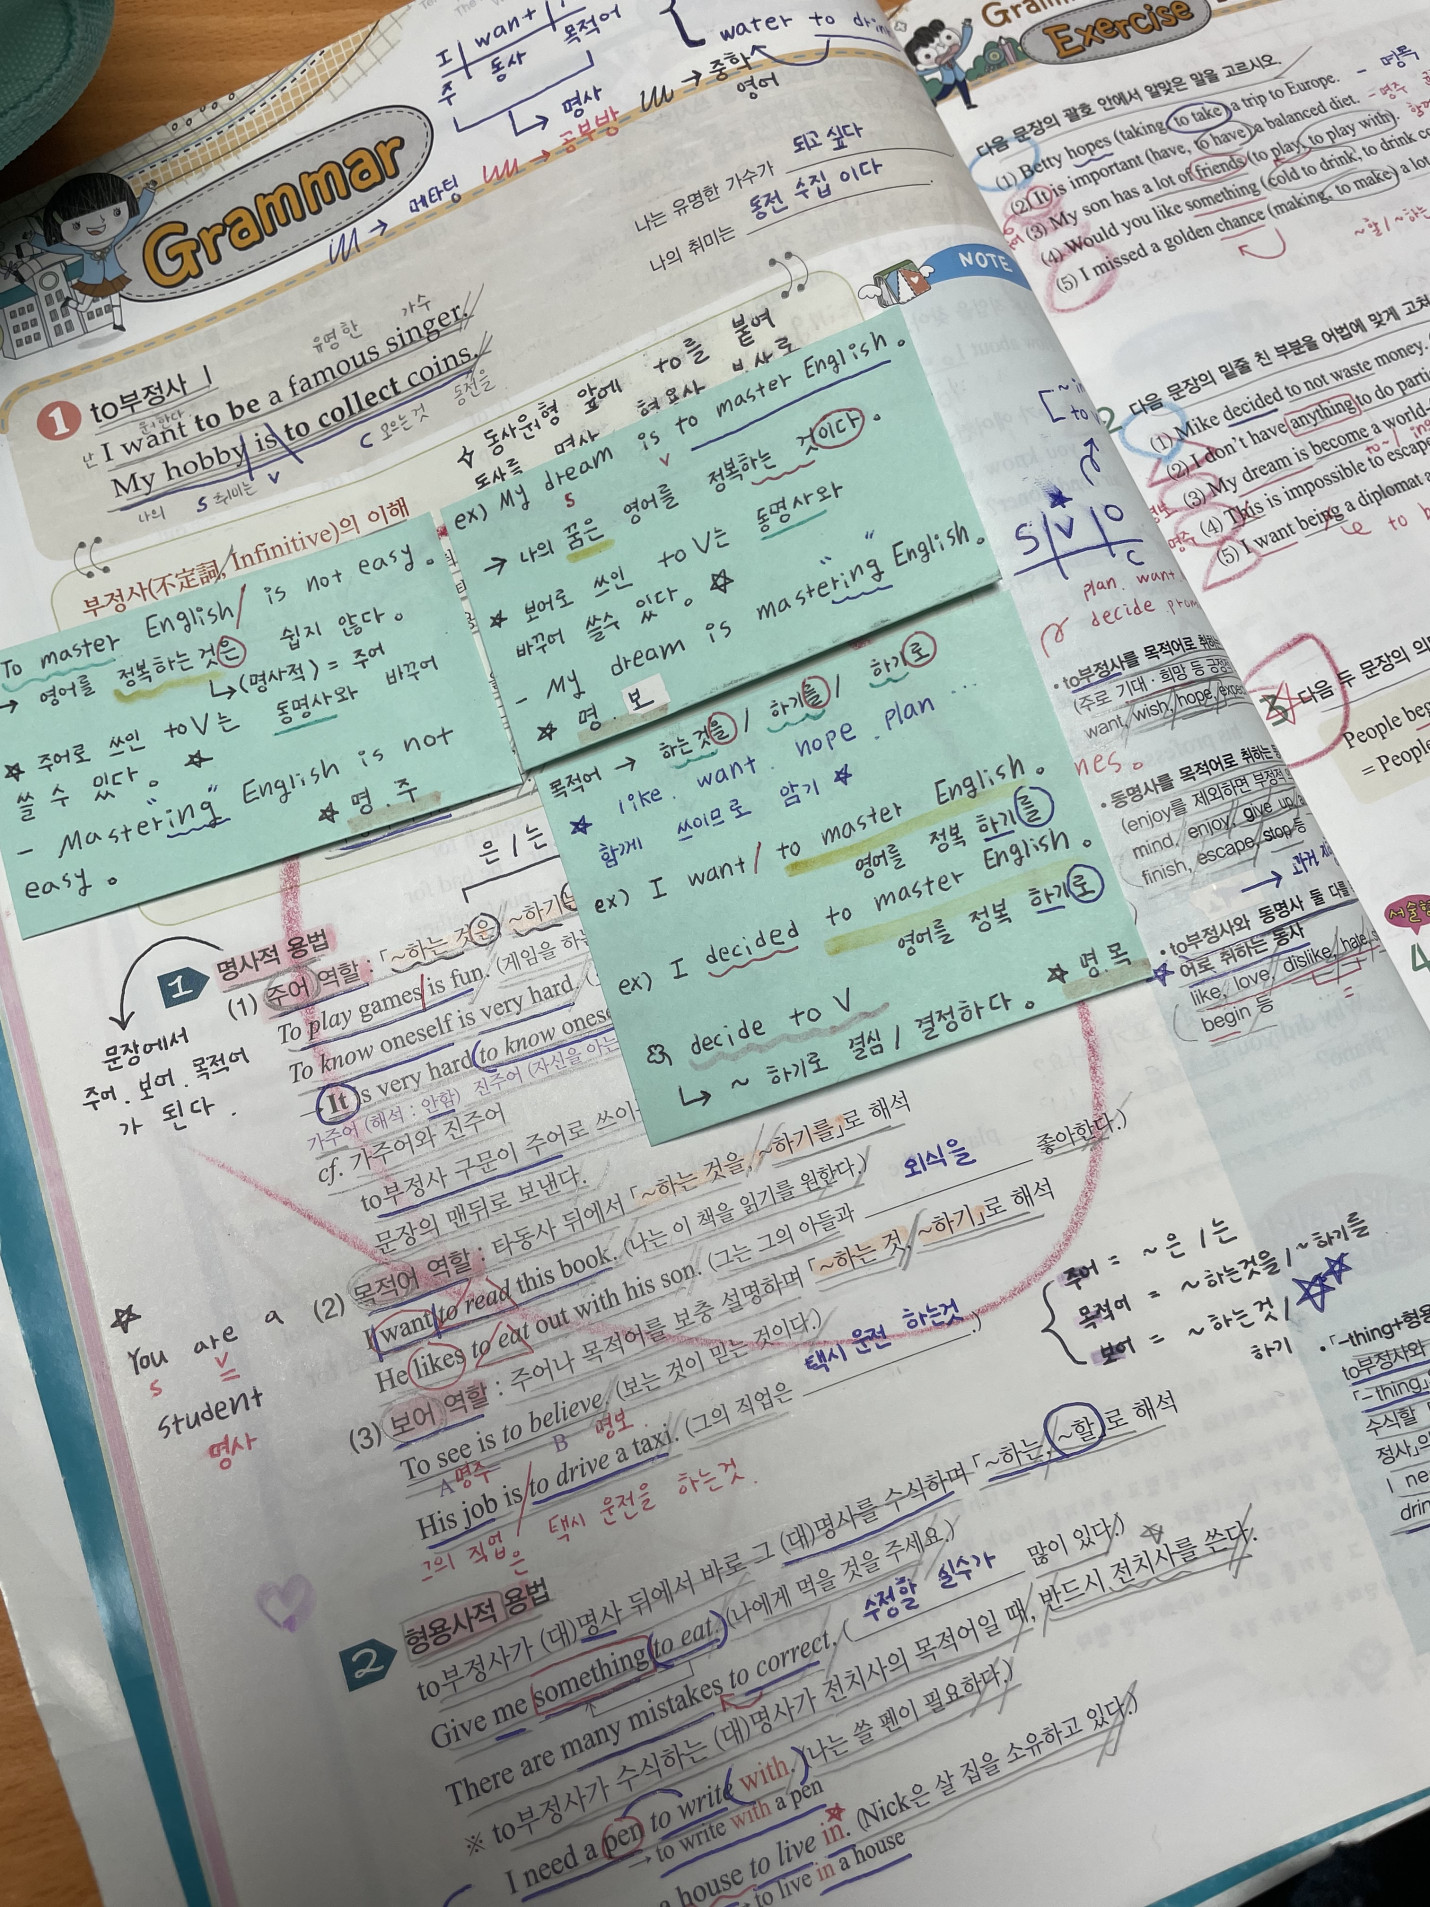 I want
주 동사 목적어
명사
water to
메타팅
공부방
중학
영어
Grammar
나는 유명한 가수가 되고 싶다
나의 취미는 동전 수집 이다
NOTE
1 to부정사 1
유명한 가수
I want to be a famous singer.
원한다
난
My hobby is to collect coins.
나의 S 취미는 V C 모으는것 동전을
부정사(不定詞, Infinitive)의 이해
동사원형 앞에 to를 붙여
명사 형용사
To master English/ is not easy.
→ 영어를 정복하는 것은 쉽지 않다.
↳(명사적) = 주어
☆ 주어로 쓰인 to V는 동명사와 바꾸어
쓸 수 있다. ☆
- Mast"ering" English is not
easy.
☆ 명.주
ex) My dream is to master English.
S V
→ 나의 꿈은 영어를 정복하는 것이다.
☆ 보어로 쓰인 to V는 동명사와
바꾸어 쓸수 있다. ☆
- My dream is mast"ering" English.
☆ 명. 보
목적어 → 하는것을 / 하기를 / 하기로
☆ like. want. hope. plan ...
함께 쓰이므로 암기 ☆
ex) I want/ to master English.
영어를 정복 하기를
ex) I decided to master English.
영어를 정복 하기로
☆ 명.목
decide to V
↳ ~ 하기로 결심 / 결정하다.
은 / 는
1 명사적 용법
문장에서
주어. 보어. 목적어
가 된다.
(1) 주어 역할 : 「~하는 것은, ~하기는
To play games/is fun. (게임을 하는
To know oneself is very hard.
→ It is very hard to know
가주어 (해석 : 안함) 진주어 (자신을 아는
cf. 가주어와 진주어
to부정사 구문이 주어로 쓰이
문장의 맨뒤로 보낸다.
(2) 목적어 역할 : 타동사 뒤에서 「~하는 것을, ~하기를」로 해석
I want to read this book. (나는 이 책을 읽기를 원한다.)
He likes to eat out with his son. (그는 그의 아들과 외식을 좋아한다.)
(3) 보어 역할 : 주어나 목적어를 보충 설명하며 「~하는 것, ~하기」로 해석
To see is to believe. (보는 것이 믿는 것이다.)
A 명주 B 명보
His job is/to drive a taxi. (그의 직업은 택시 운전 하는것.)
그의 직업은 / 택시 운전을 하는것.
☆
You are a
S V
student
명사
주어 = ~은 / 는
목적어 = ~하는것을 / ~하기를
보어 = ~하는것 /
하기
2 형용사적 용법
to부정사가 (대)명사 뒤에서 바로 그 (대)명사를 수식하며 「~하는, ~할」로 해석
Give me something to eat. (나에게 먹을 것을 주세요.)
There are many mistakes to correct. (수정할 실수가 많이 있다.)
※ to부정사가 수식하는 (대)명사가 전치사의 목적어일 때, 반드시 전치사를 쓴다.
I need a pen to write with. (나는 쓸 펜이 필요하다.)
→ to write with a pen
a house to live in. (Nick은 살 집을 소유하고 있다.)
→ to live in a house
S V O
C
plan. want
decide
• to부정사를 목적어로 취하는
(주로 기대 · 희망 등 긍정
want, wish, hope,
• 동명사를 목적어로 취하는
(enjoy를 제외하면 부정적
mind, enjoy, give up,
finish, escape, stop 등
→ 과거
• to부정사와 동명사 둘 다를
어로 취하는 동사
like, love, dislike, hate,
begin 등
• 「-thing+형용
to부정사와
「-thing」
수식할
정사」의
I ne
drin
Exercise
다음 문장의 괄호 안에서 알맞은 말을 고르시오.
(1) Betty hopes (taking, to take) a trip to Europe. - 명목
(2) It is important (have, to have) a balanced diet. - 명주
(3) My son has a lot of friends (to play, to play with).
(4) Would you like something (cold to drink, to drink
(5) I missed a golden chance (making, to make) a lot
2 다음 문장의 밑줄 친 부분을 어법에 맞게 고쳐
(1) Mike decided to not waste money.
(2) I don't have anything to do
(3) My dream is become a world-
(4) This is impossible to escape
(5) I want being a diplomat
to
3 다음 두 문장의 의미
People
= People
서술형
4